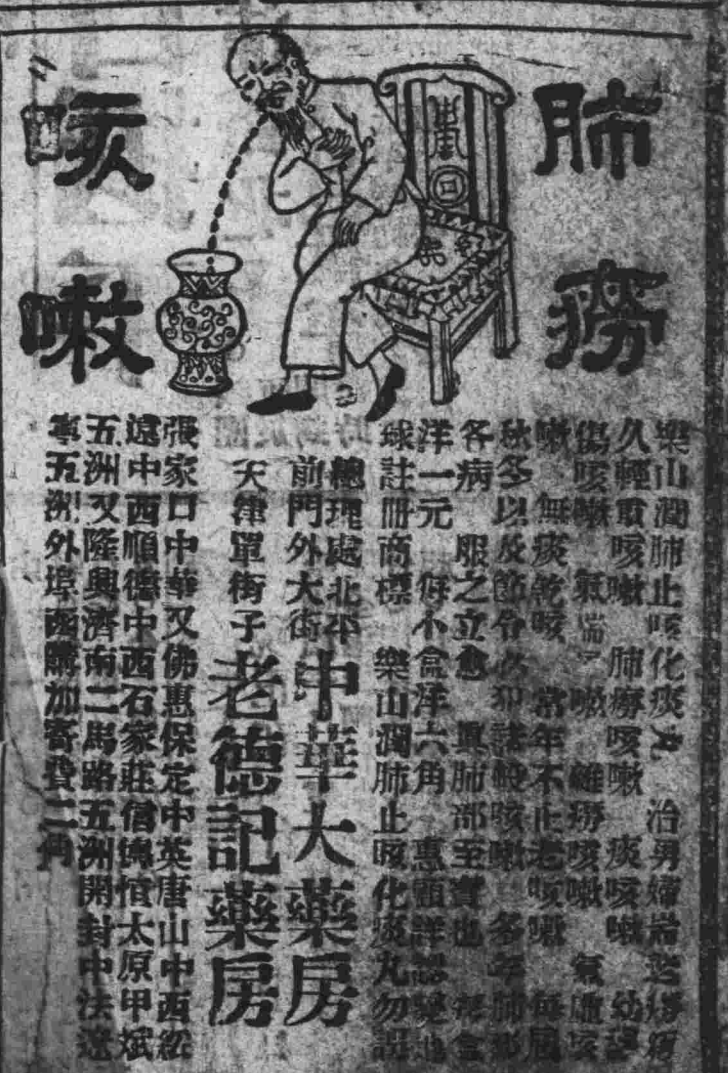 肺癆
咳嗽
樂山潤肺止咳化痰丸 治男婦
久輕重咳嗽 肺癆咳嗽 痰咳嗽
傷咳嗽 氣喘咳嗽 咳嗽 氣
嗽 無痰乾咳 常年不止老咳嗽 每屆
秋冬以及節令 咳嗽 多年肺
各病 服之立愈 真肺部至寶也 每盒
洋一元 小盒洋六角 惠顧詳認
球註冊商標 樂山潤肺止咳化痰丸勿誤
總理處北平
前門外大街
中華大藥房
天津單街子
老德記藥房
張家口中華又佛惠保定中英唐山中西綏
遠中西順德中西石家莊信 恒太原甲斌
五洲又隆興濟南二馬路五洲開封中法遼
寧五洲外埠函購加寄費二角